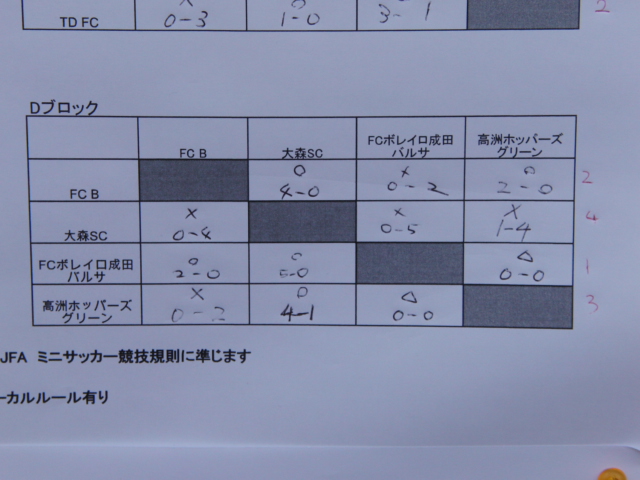 TD FC × 0-3 ○ 1-0 3-1 2
Dブロック
FC B 大森SC FCボレイロ成田 バルサ 高洲ホッパーズ グリーン
FC B ○ 4-0 × 0-2 ○ 2-0 2
大森SC × 0-4 × 0-5 × 1-4 4
FCボレイロ成田 バルサ ○ 2-0 ○ 5-0 △ 0-0 1
高洲ホッパーズ グリーン × 0-2 ○ 4-1 △ 0-0 3
JFA ミニサッカー競技規則に準じます
ーカルルール有り